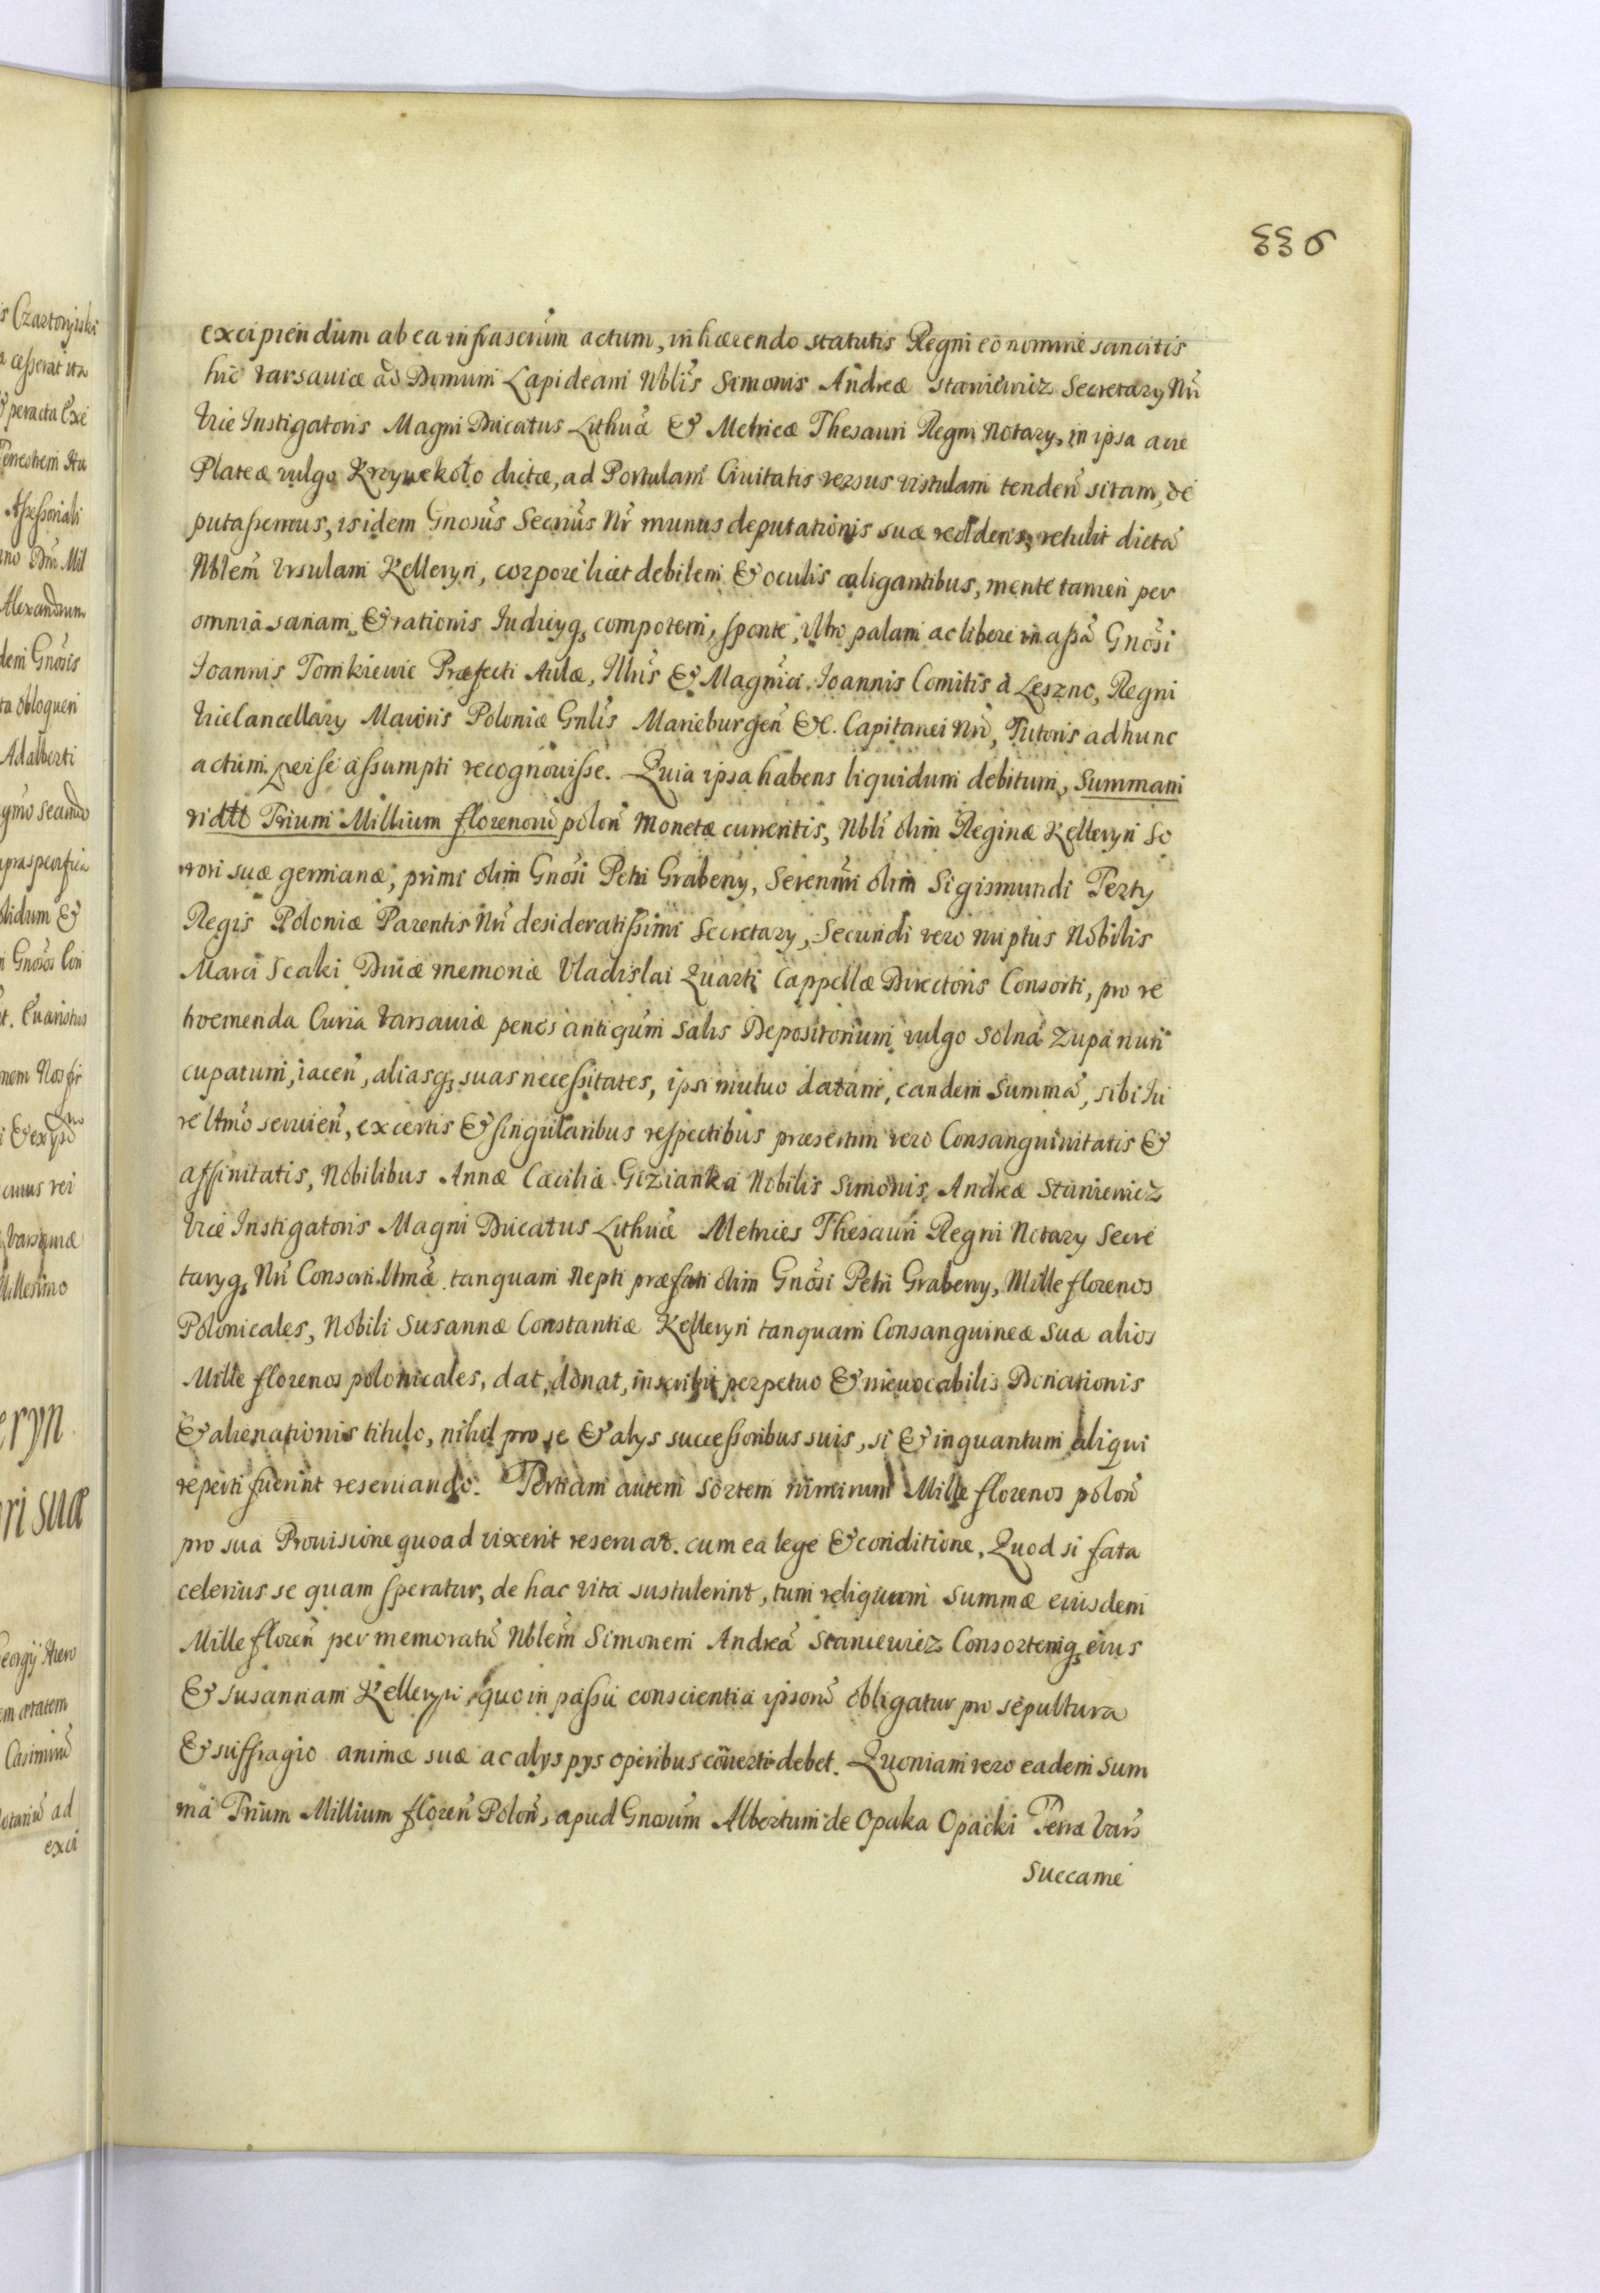 336
excipiendum ab ea infrascrūm actum, inhærendo statutis Regni eo nomine sancitis
hic Varsaviæ ad Domum Lapideam Nblīs Simonis Andreæ Staniewicz Secretary Nrī
Vice Instigatoris Magni Ducatus Lithuæ & Metricæ Thesauri Regni Notary, in ipsa acie
Plateæ vulgo Krzywekoło dictæ, ad Portulam Civitatis versus Vistulam tenden̄ sitam, de
putassemus, is idem Gnosūs Secriūs Nr̄ munus deputationis suæ reddens, retulit dictā
Nblem̄ Vrsulam Kelleryn, corpore licet debilem & oculis caligantibus, mente tamen per
omnia sanam, & rationis Iudicyq, compotem, sponte, Vltro palam ac libere in assā Gnōsi
Ioannis Tomkiewic Præfecti Aulæ, Illrīs & Magnīci Ioannis Comitis à Leszno, Regni
Vicecancellary Maioris Poloniæ Gnlīs Marieburgen̄ &c. Capitanei Nrī, Tutoris ad hunc
actum per se assumpti recognouisse. Quia ipsa habens liquidum debitum, Summam
vidtt Trium Millium florenorū polon̄ Monetæ currentis, Nbli olim Reginæ Kelleryn So
rori suæ germanæ, primi olim Gnōsi Petri Grabeny, Serenm̄i olim Sigismundi Terty
Regis Poloniæ Parentis Nrī desideratissimi Secretary, Secundi vero nuptus Nobilis
Marci Scaki Diuæ memoriæ Vladislai Quarti Cappellæ Directoris Consorti, pro re
ttroemenda Curia Varsauiæ penes antiquūm Salis Depositorium vulgo Solna Zupa nun
cupatum, iacen̄, aliasq, suas necessitates, ipsi mutuo datam, eandem Summā, sibi Iu
re Vltm̄o seruien̄, ex certis & singularibus respectibus præsertim vero Consanguinitatis &
affinitatis, Nobilibus Annæ Cæciliæ Gizianka Nobilis Simonis Andreæ Staniewicz
Vice Instigatoris Magni Ducatus Lithuæ Metrices Thesauri Regni Notary Secre
taryq, Nrī Consorti Vltmæ tanquam Nepti præfati olim Gnōsi Petri Grabeny, Mille florenos
Polonicales, Nobili Susannæ Constantiæ Kelleryn tanquam Consanguineæ suæ alios
Mille florenos polonicales, dat, donat, inscribit perpetuo & irreuocabilis Donationis
& alienationis titulo, nihil pro se & alys successoribus suis, si & inquantum aliqui
reperti fuerint reseruando. Tertiam autem sortem nimirum Mille florenos polon̄
pro sua Prouisione quoad vixerit reseruat. cum ea lege & conditione. Quod si fata
celerius se quam speratur, de hac vita sustulerint, tum reliquum Summæ eiusdem
Mille floren̄ per memoratū Nblem̄ Simonem Andreā Staniewicz Consortemq, eius
& Susannam Kelleryn, quo in passu conscientia ipsorū obligatur pro sepultura
& suffragio animæ suæ ac alys pys operibus cōuerti debet. Quoniam vero eadem Sum
ma Trium Millium floren̄ Polon̄, apud Gnosūm Albertum de Opaka Opacki Terræ Vars̄
Succame